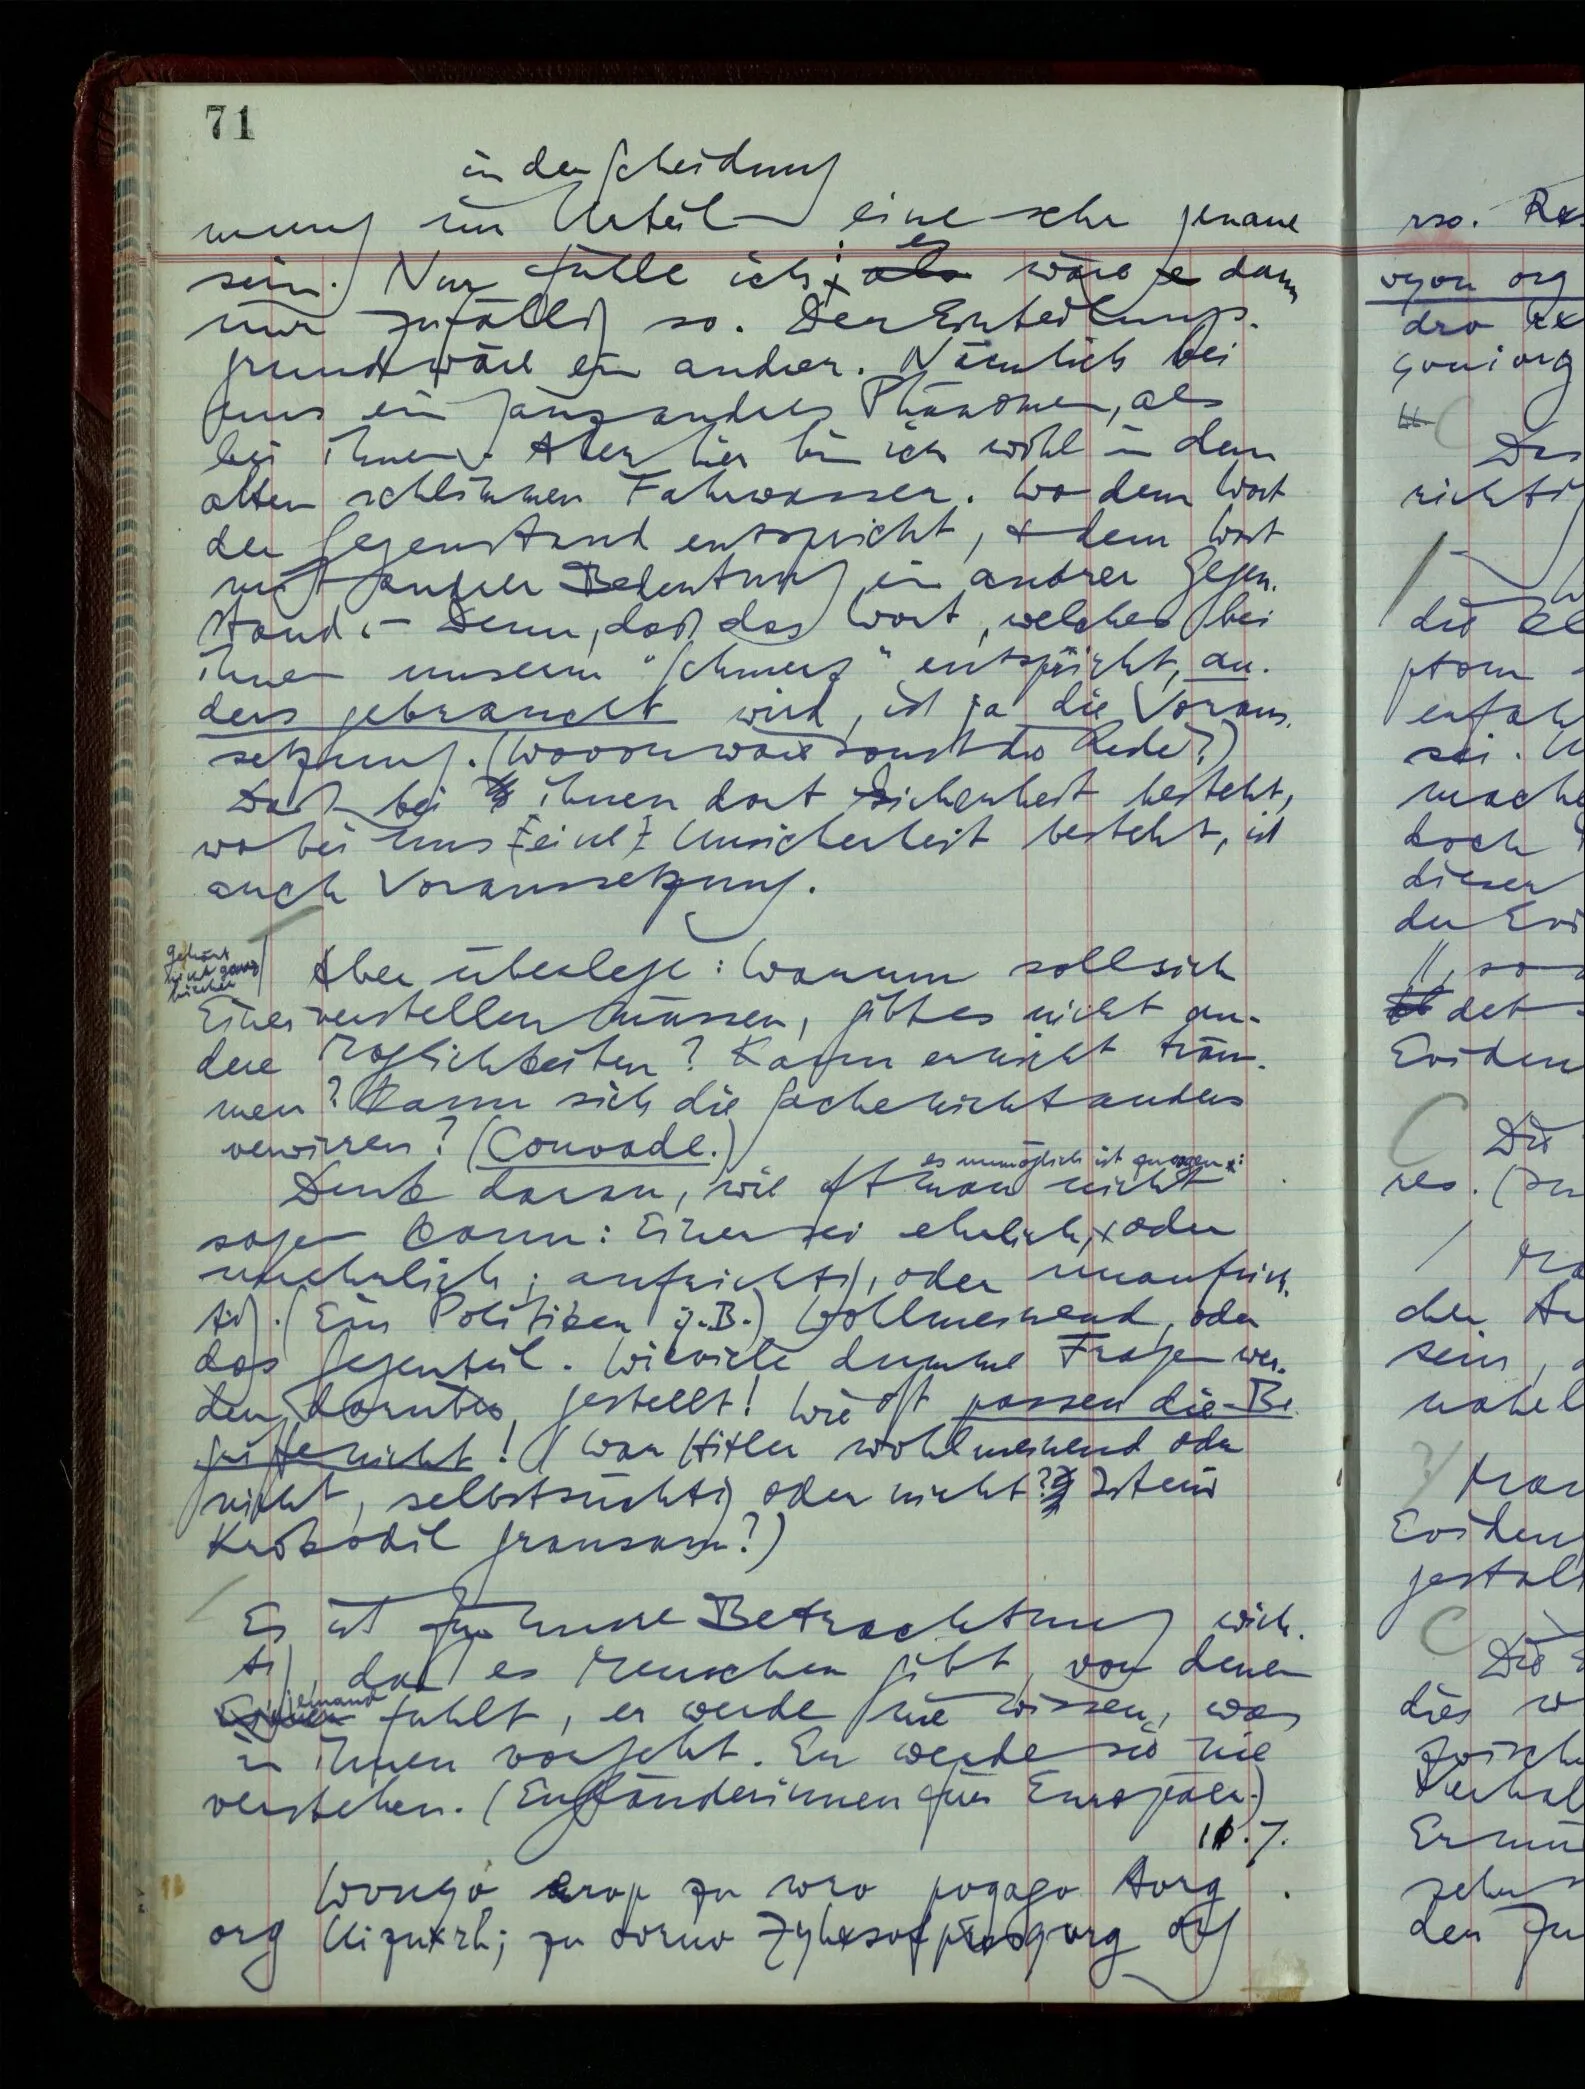 71
in der Scheidung
mung im Urteil eine sehr genaue
sein. Nur fühle ich: es wäre dann
nur zufällig so. Der Einteilungs-
grund wäre ein andrer. Nämlich bei
uns ein ganz andres Phänomen, als
bei ihnen. – Aber hier bin ich wohl in dem
alten schlimmen Fahrwasser. Wo dem Wort
der Gegenstand entspricht, & dem Wort
mit andrer Bedeutung ein andrer Gegen-
stand. – Denn, daß das Wort, welches bei
ihnen unserm "Schmerz" entspricht, an-
ders gebraucht wird, ist ja die Voraus-
setzung. (Wovon wäre sonst die Rede?)
Daß bei ihnen dort Sicherheit besteht,
wo bei uns eine Unsicherheit besteht, ist
auch Voraussetzung.
gehört
nicht ganz
hierher
Aber überlege: Warum soll sich
Einer verstellen müssen, gibt es nicht an-
dere Möglichkeiten? Kann er nicht träu-
men? Kann sich die Sache nicht anders
verwirren? (Couvade.)
es unmöglich ist zu sagen:
Denk daran, wie oft man nicht
sagen kann: Einer sei ehrlich, oder
unehrlich; aufrichtig, oder unaufrich-
tig. (Ein Politiker z.B.) Wohlmeinend, oder
das Gegenteil. Wieviele dumme Fragen wer-
den darüber gestellt! Wie oft passen die Be-
griffe nicht! (War Hitler wohlmeinend oder
nicht, selbstsüchtig oder nicht? Ist ein
Krokodil grausam?)
Es ist für unsre Betrachtung wich-
tig, daß es Menschen gibt, von denen
jemand fühlt, er werde nie wissen, was
in ihnen vorgeht. Er werde sie nie
verstehen. (Engländerinnen für Europäer.)
zu wro pogago
org
rso.
vyou org
dro
gouiorg
richti
die
enfah
sei.
mache
doch
dieser
der Evi
, so
det
Eviden
Die
res.
Ma
cher
sein,
Man
Eviden
gestalt
Die
dies w
zwisch
Verhal
sehr
den Zu